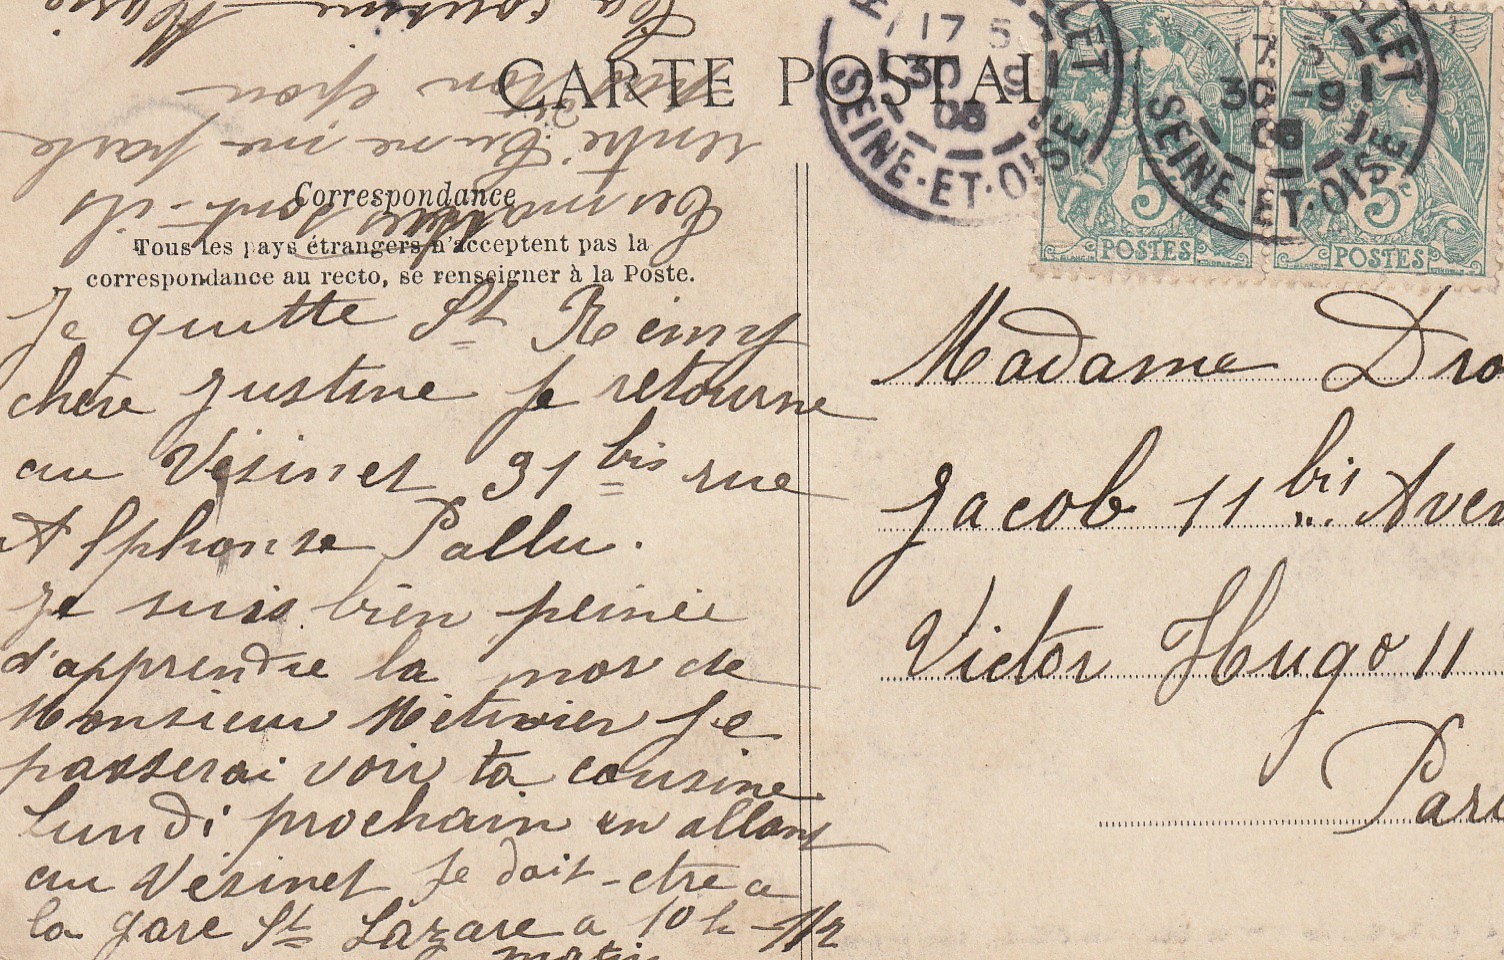 CARTE POSTALE
Correspondance
Tous les pays étrangers n'acceptent pas la
correspondance au recto, se renseigner à la Poste.
Je quitte St Remy
chère Justine je retourne
au Vésinet 31 bis rue
Alphonse Pallu.
Je suis bien peinée
d'apprendre la mor de
Monsieur Métivier je
passerai voir ta cousine
lundi prochain en allant
au Vésinet je doit-etre a
la gare St Lazare a 10 h 1/2
matin
tes maîtres sont-ils
rentré tu ne me parle
pas
ta cousine Marie
17 5
30 -9
08
SEINE-ET-OISE
17 5
30 -9
08
SEINE-ET-OISE
5c
POSTES
5c
POSTES
Madame Dro
Jacob 11 bis Aven
Victor Hugo 11
Pari